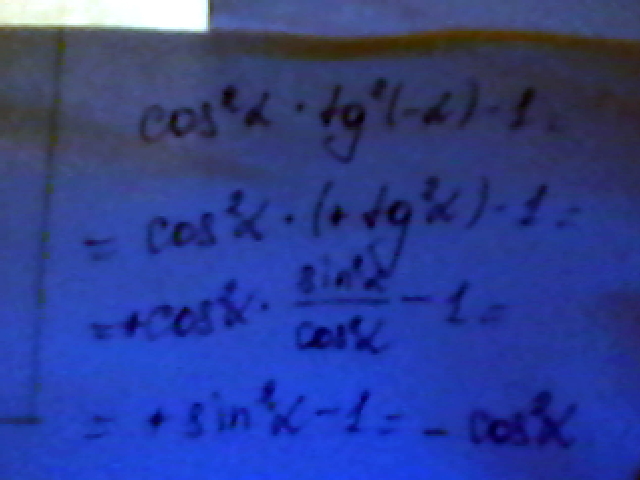 cos²α · tg²(-α) - 1 =
= cos²α · (+ tg²α) - 1 =
= + cos²α · sin²α/cos²α - 1 =
= + sin²α - 1 = - cos²α